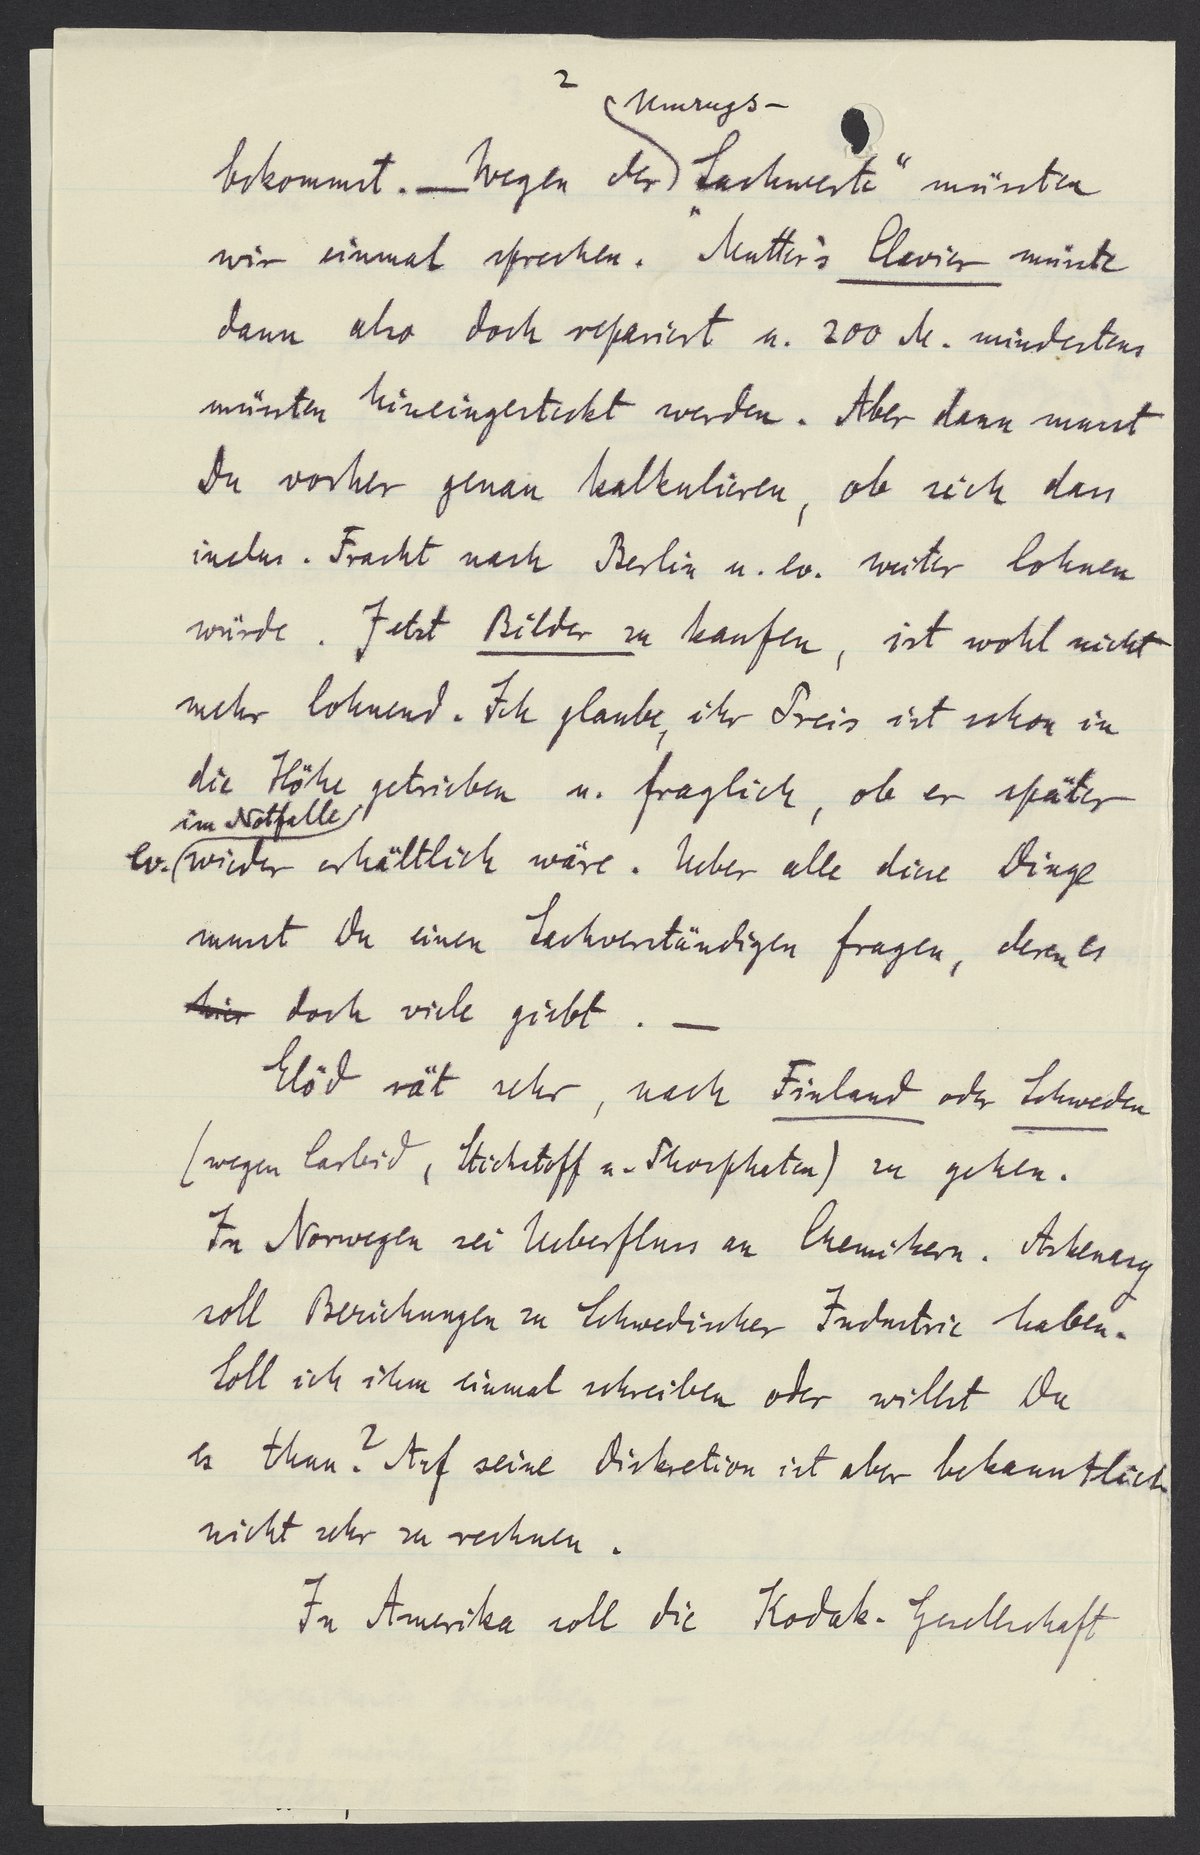 2
Umzugs-
bekommst. — Wegen der „Sachwerte“ müssten
wir einmal sprechen. Mutter's Clavier müsste
dann also doch repariert u. 200 M. mindestens
müssten hineingesteckt werden. Aber dann musst
Du vorher genau kalkulieren, ob sich das
inclus. Fracht nach Berlin u. ev. weiter lohnen
würde. Jetzt Bilder zu kaufen, ist wohl nicht
mehr lohnend. Ich glaube, ihr Preis ist schon in
die Höhe getrieben u. fraglich, ob er später
im Notfalle
ev. wieder erhältlich wäre. Ueber alle diese Dinge
musst Du einen Sachverständigen fragen, deren es
hier doch viele giebt. —
Elöd rät sehr, nach Finland oder Schweden
(wegen Carbid, Stickstoff u. Phosphaten) zu gehen.
In Norwegen sei Ueberfluss an Chemikern. Askenasy
soll Beziehungen zu Schwedischer Industrie haben.
Soll ich ihm einmal schreiben oder willst Du
es thun? Auf seine Diskretion ist aber bekanntlich
nicht sehr zu rechnen.
In Amerika soll die Kodak-Gesellschaft